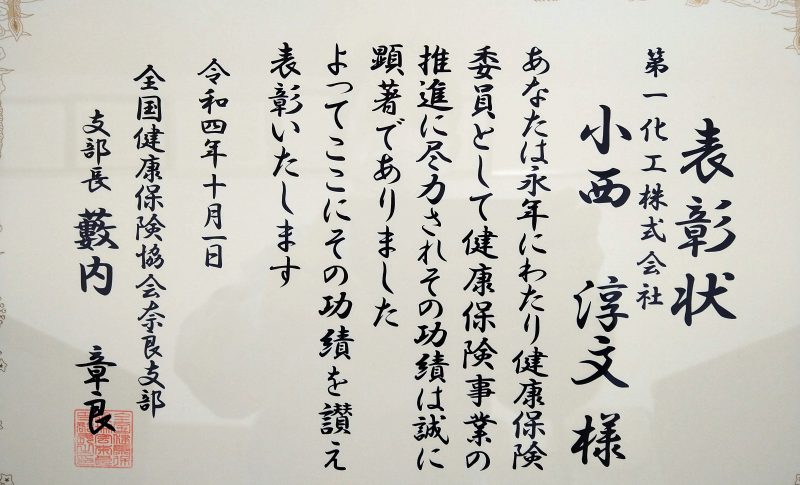 表彰状
第一化工株式会社
小西 淳文 様
あなたは永年にわたり健康保険
委員として健康保険事業の
推進に尽力されその功績は誠に
顕著でありました
よってここにその功績を讃え
表彰いたします
令和四年十月一日
全国健康保険協会奈良支部
支部長 藪内 章良